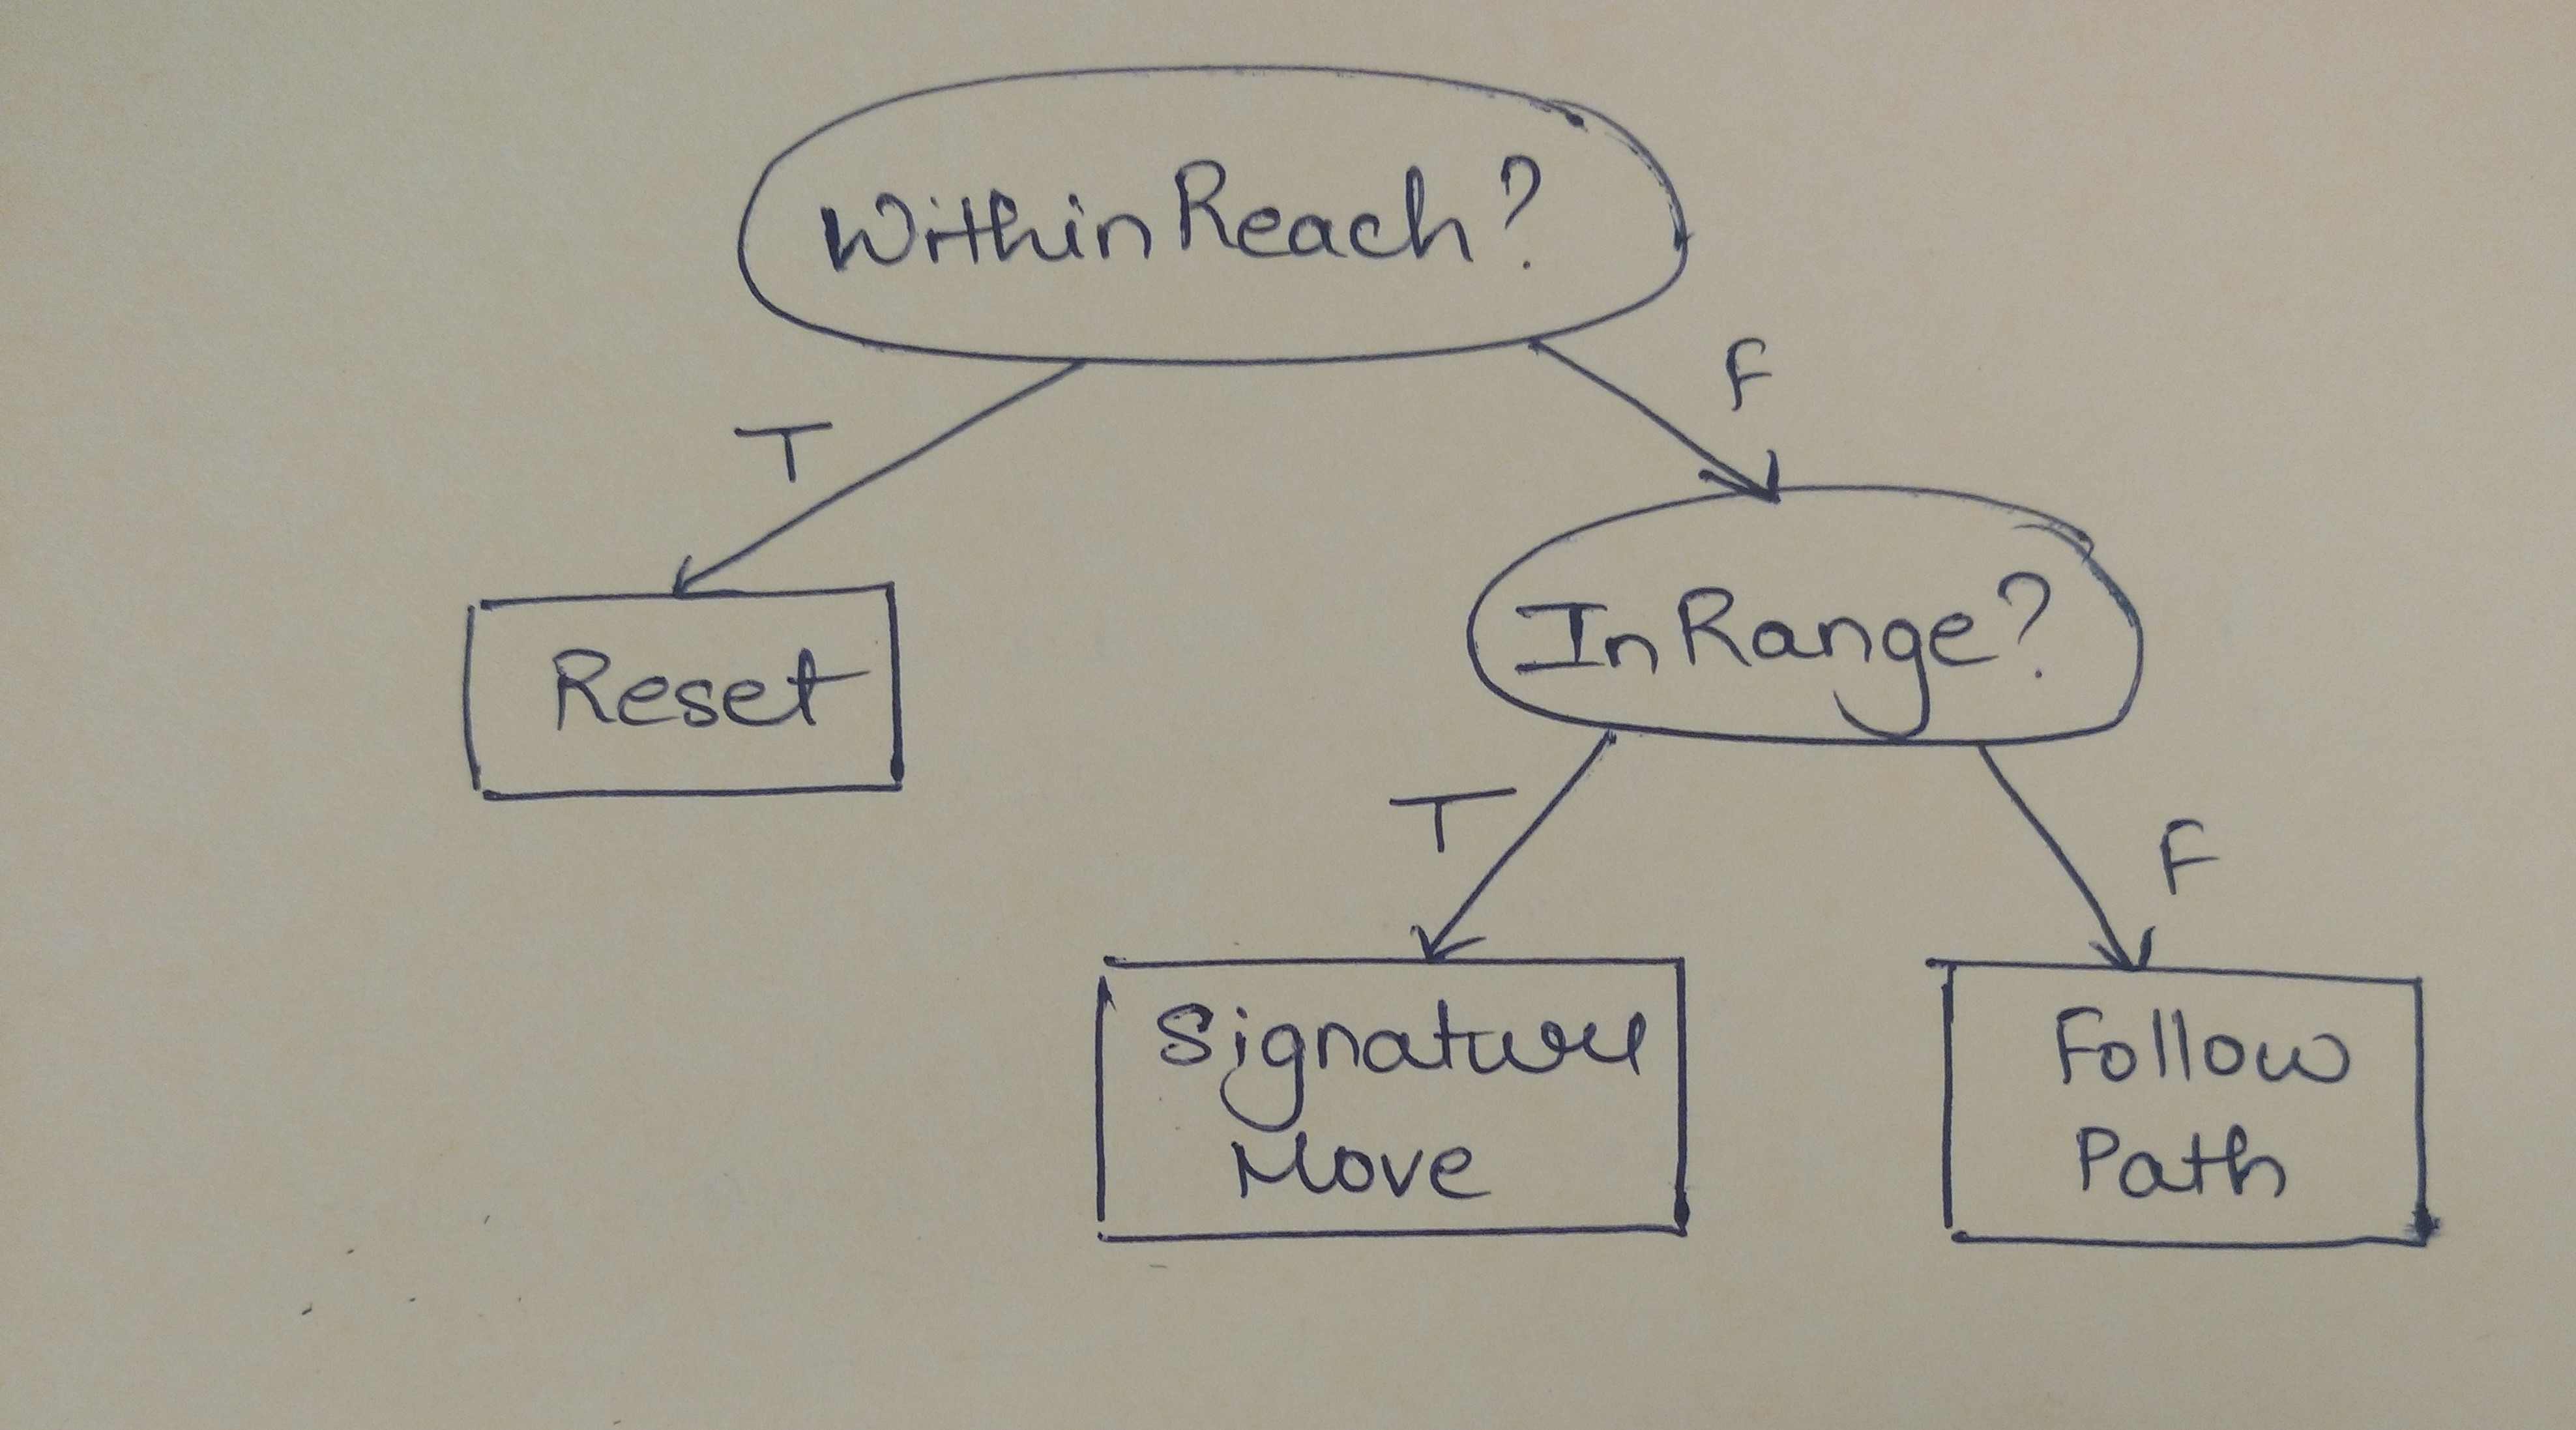 Within Reach?
T
F
Reset
In Range?
T
F
Signature
Move
Follow
Path